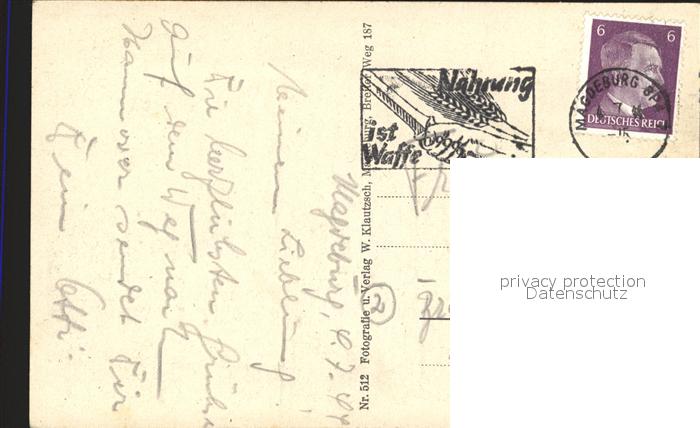 Magdeburg, 4.7.44
Meinen Liebling!
Die herzlichsten Grüße
auf dem Weg nach
Hannover sendet Dir
Dein
Nr. 512 Fotografie u. Verlag W. Klautzsch, Breiter Weg 187
Nahrung
ist
Waffe
6 6
DEUTSCHES REICH
MAGDEBURG
2
privacy protection
Datenschutz